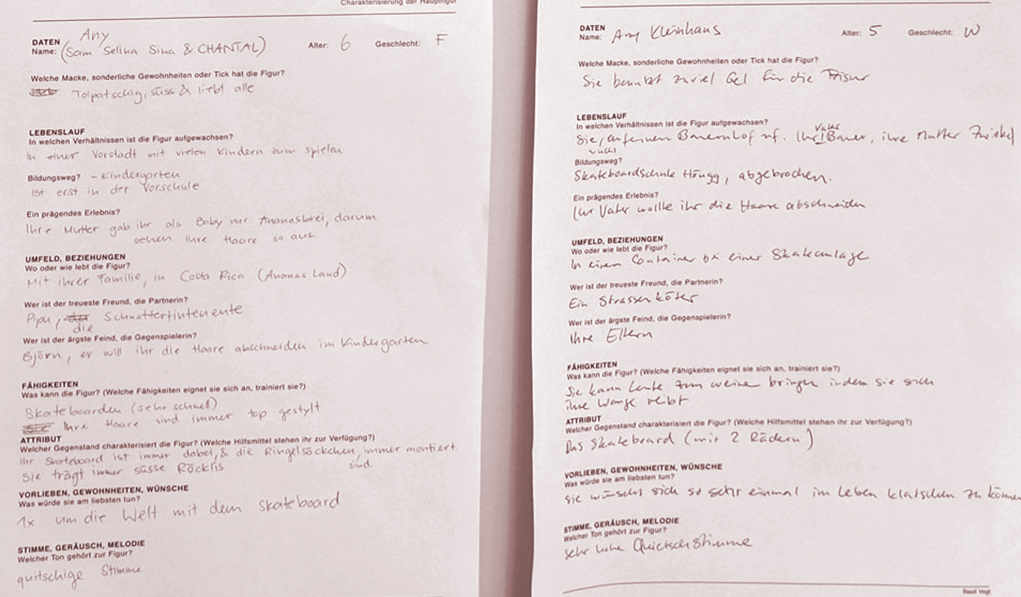 Charakterisierung der Hauptfigur
DATEN Any
Name: (Sam Selina Sina & CHANTAL) Alter: 6 Geschlecht: F
Welche Macke, sonderliche Gewohnheiten oder Tick hat die Figur?
Tolpatschig, süss & liebt alle
LEBENSLAUF
In welchen Verhältnissen ist die Figur aufgewachsen?
In einer Vorstadt mit vielen Kindern zum spielen
Bildungsweg? – Kindergarten
Ist erst in der Vorschule
Ein prägendes Erlebnis?
Ihre Mutter gab ihr als Baby nur Ananasbrei, darum
sehen ihre Haare so aus
UMFELD, BEZIEHUNGEN
Wo oder wie lebt die Figur?
Mit ihrer Familie, in Costa Rica (Ananas Land)
Wer ist der treueste Freund, die Partnerin?
Pipu, die Schnattertintenente
Wer ist der ärgste Feind, die Gegenspielerin?
Björn, er will ihr die Haare abschneiden im Kindergarten
FÄHIGKEITEN
Was kann die Figur? (Welche Fähigkeiten eignet sie sich an, trainiert sie?)
Skateboarden (sehr schnell)
Ihre Haare sind immer top gestylt
ATTRIBUT
Welcher Gegenstand charakterisiert die Figur? (Welche Hilfsmittel stehen ihr zur Verfügung?)
Ihr Skateboard ist immer dabei, & die Ringelsöckchen, immer montiert
Sie trägt immer süsse Röcklis sind
VORLIEBEN, GEWOHNHEITEN, WÜNSCHE
Was würde sie am liebsten tun?
1x um die Welt mit dem Skateboard
STIMME, GERÄUSCH, MELODIE
Welcher Ton gehört zur Figur?
quitschige Stimme
DATEN
Name: Any Kleinhaus Alter: 5 Geschlecht: W
Welche Macke, sonderliche Gewohnheiten oder Tick hat die Figur?
Sie benutzt zuviel Gel für die Frisur
LEBENSLAUF
In welchen Verhältnissen ist die Figur aufgewachsen?
Sie, auf einem Bauernhof auf. Ihr Vater Bauer, ihre Mutter
Bildungsweg?
Skateboardschule Höngg, abgebrochen.
Ein prägendes Erlebnis?
Ihr Vater wollte ihr die Haare abschneiden
UMFELD, BEZIEHUNGEN
Wo oder wie lebt die Figur?
In einem Container bei einer Skateanlage
Wer ist der treueste Freund, die Partnerin?
Ein Strassenköter
Wer ist der ärgste Feind, die Gegenspielerin?
Ihre Eltern
FÄHIGKEITEN
Was kann die Figur? (Welche Fähigkeiten eignet sie sich an, trainiert sie?)
Sie kann Leute zum weine bringen indem sie sich
ihre Wange reibt
ATTRIBUT
Welcher Gegenstand charakterisiert die Figur? (Welche Hilfsmittel stehen ihr zur Verfügung?)
Das Skateboard (mit 2 Rädern)
VORLIEBEN, GEWOHNHEITEN, WÜNSCHE
Was würde sie am liebsten tun?
Sie wünscht sich so sehr einmal im Leben klatschen zu können
STIMME, GERÄUSCH, MELODIE
Welcher Ton gehört zur Figur?
sehr hohe Quietsch Stimme